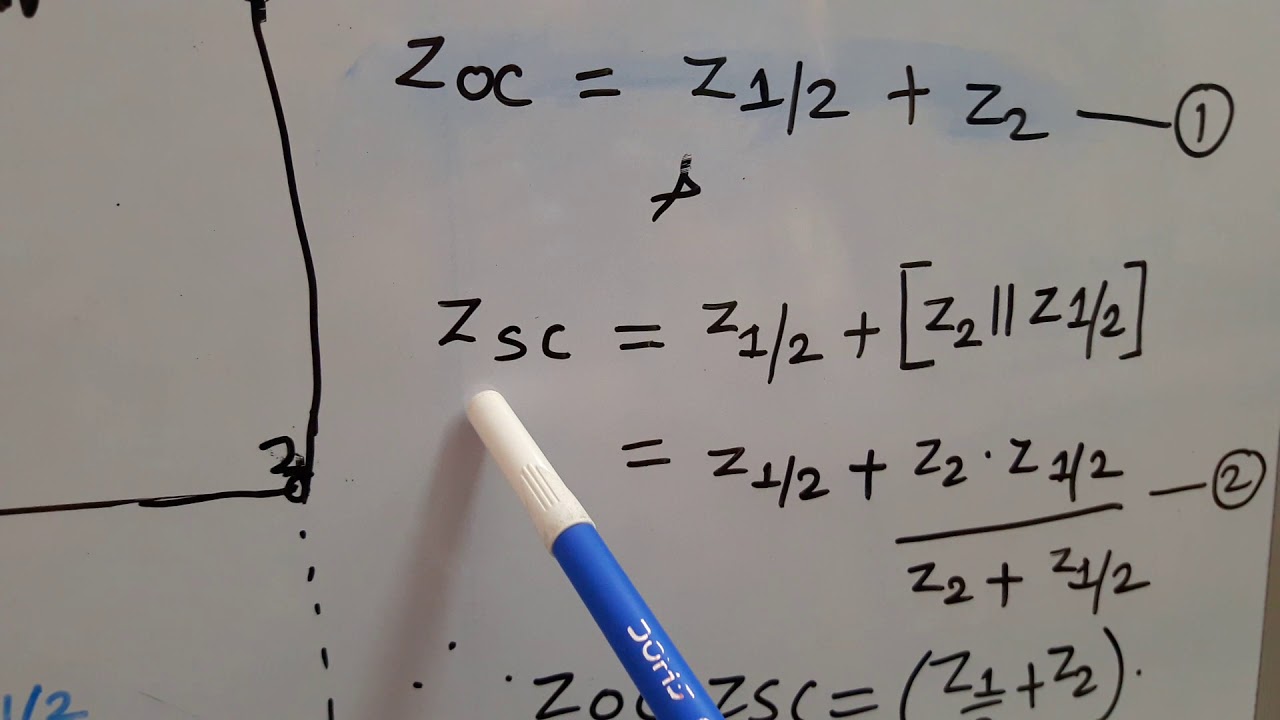 Zoc = Z1/2 + Z2 — ①
Zsc = Z1/2 + [Z2 || Z1/2]
= Z1/2 + Z2 · Z1/2 — ②
Z2 + Z1/2
2
∴ Zoc Zsc = (Z1 + Z2) ·
1/2